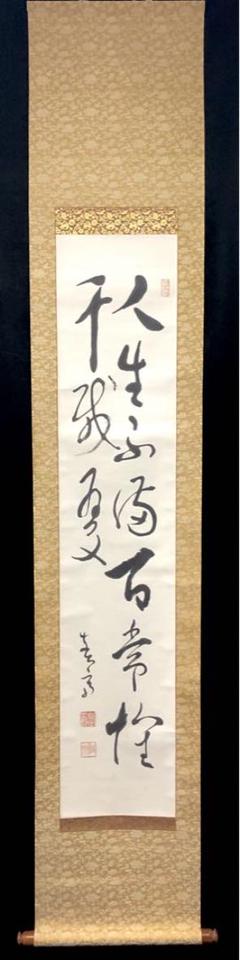 人生不満百常懐
千載憂